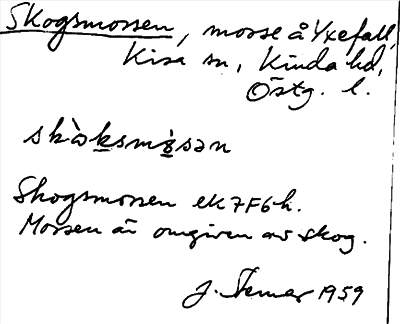 Skogsmossen, mosse å Yxefall,
Kisa sn, Kinda hd,
Östg. l.
skògksmi̬sən
Skogsmossen ek 7F6h.
Mossen är omgiven av skog.
J. 1959